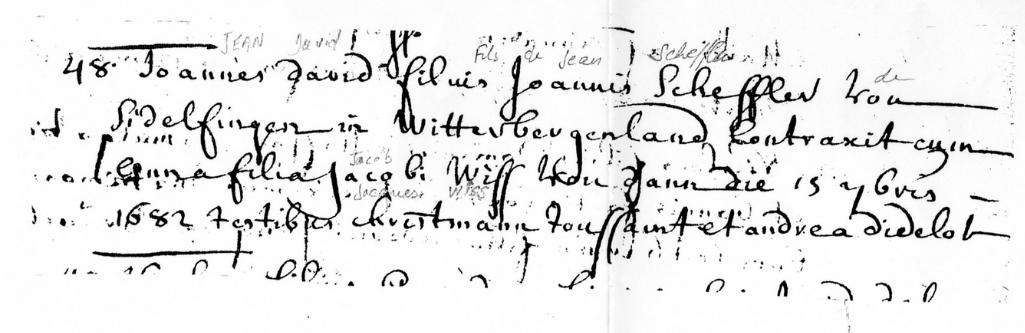 JEAN David Fils de Jean Scheffler
48 Joannes david filius Joannis Scheffler von de
Sidelfingen in Witterbergenland Contraxit cum
Anna filia Jacobi Wiss von dann die 15 7bris
Jacob
Jacques Wiss
1682 testibus christmann toussaint et andrea didelot